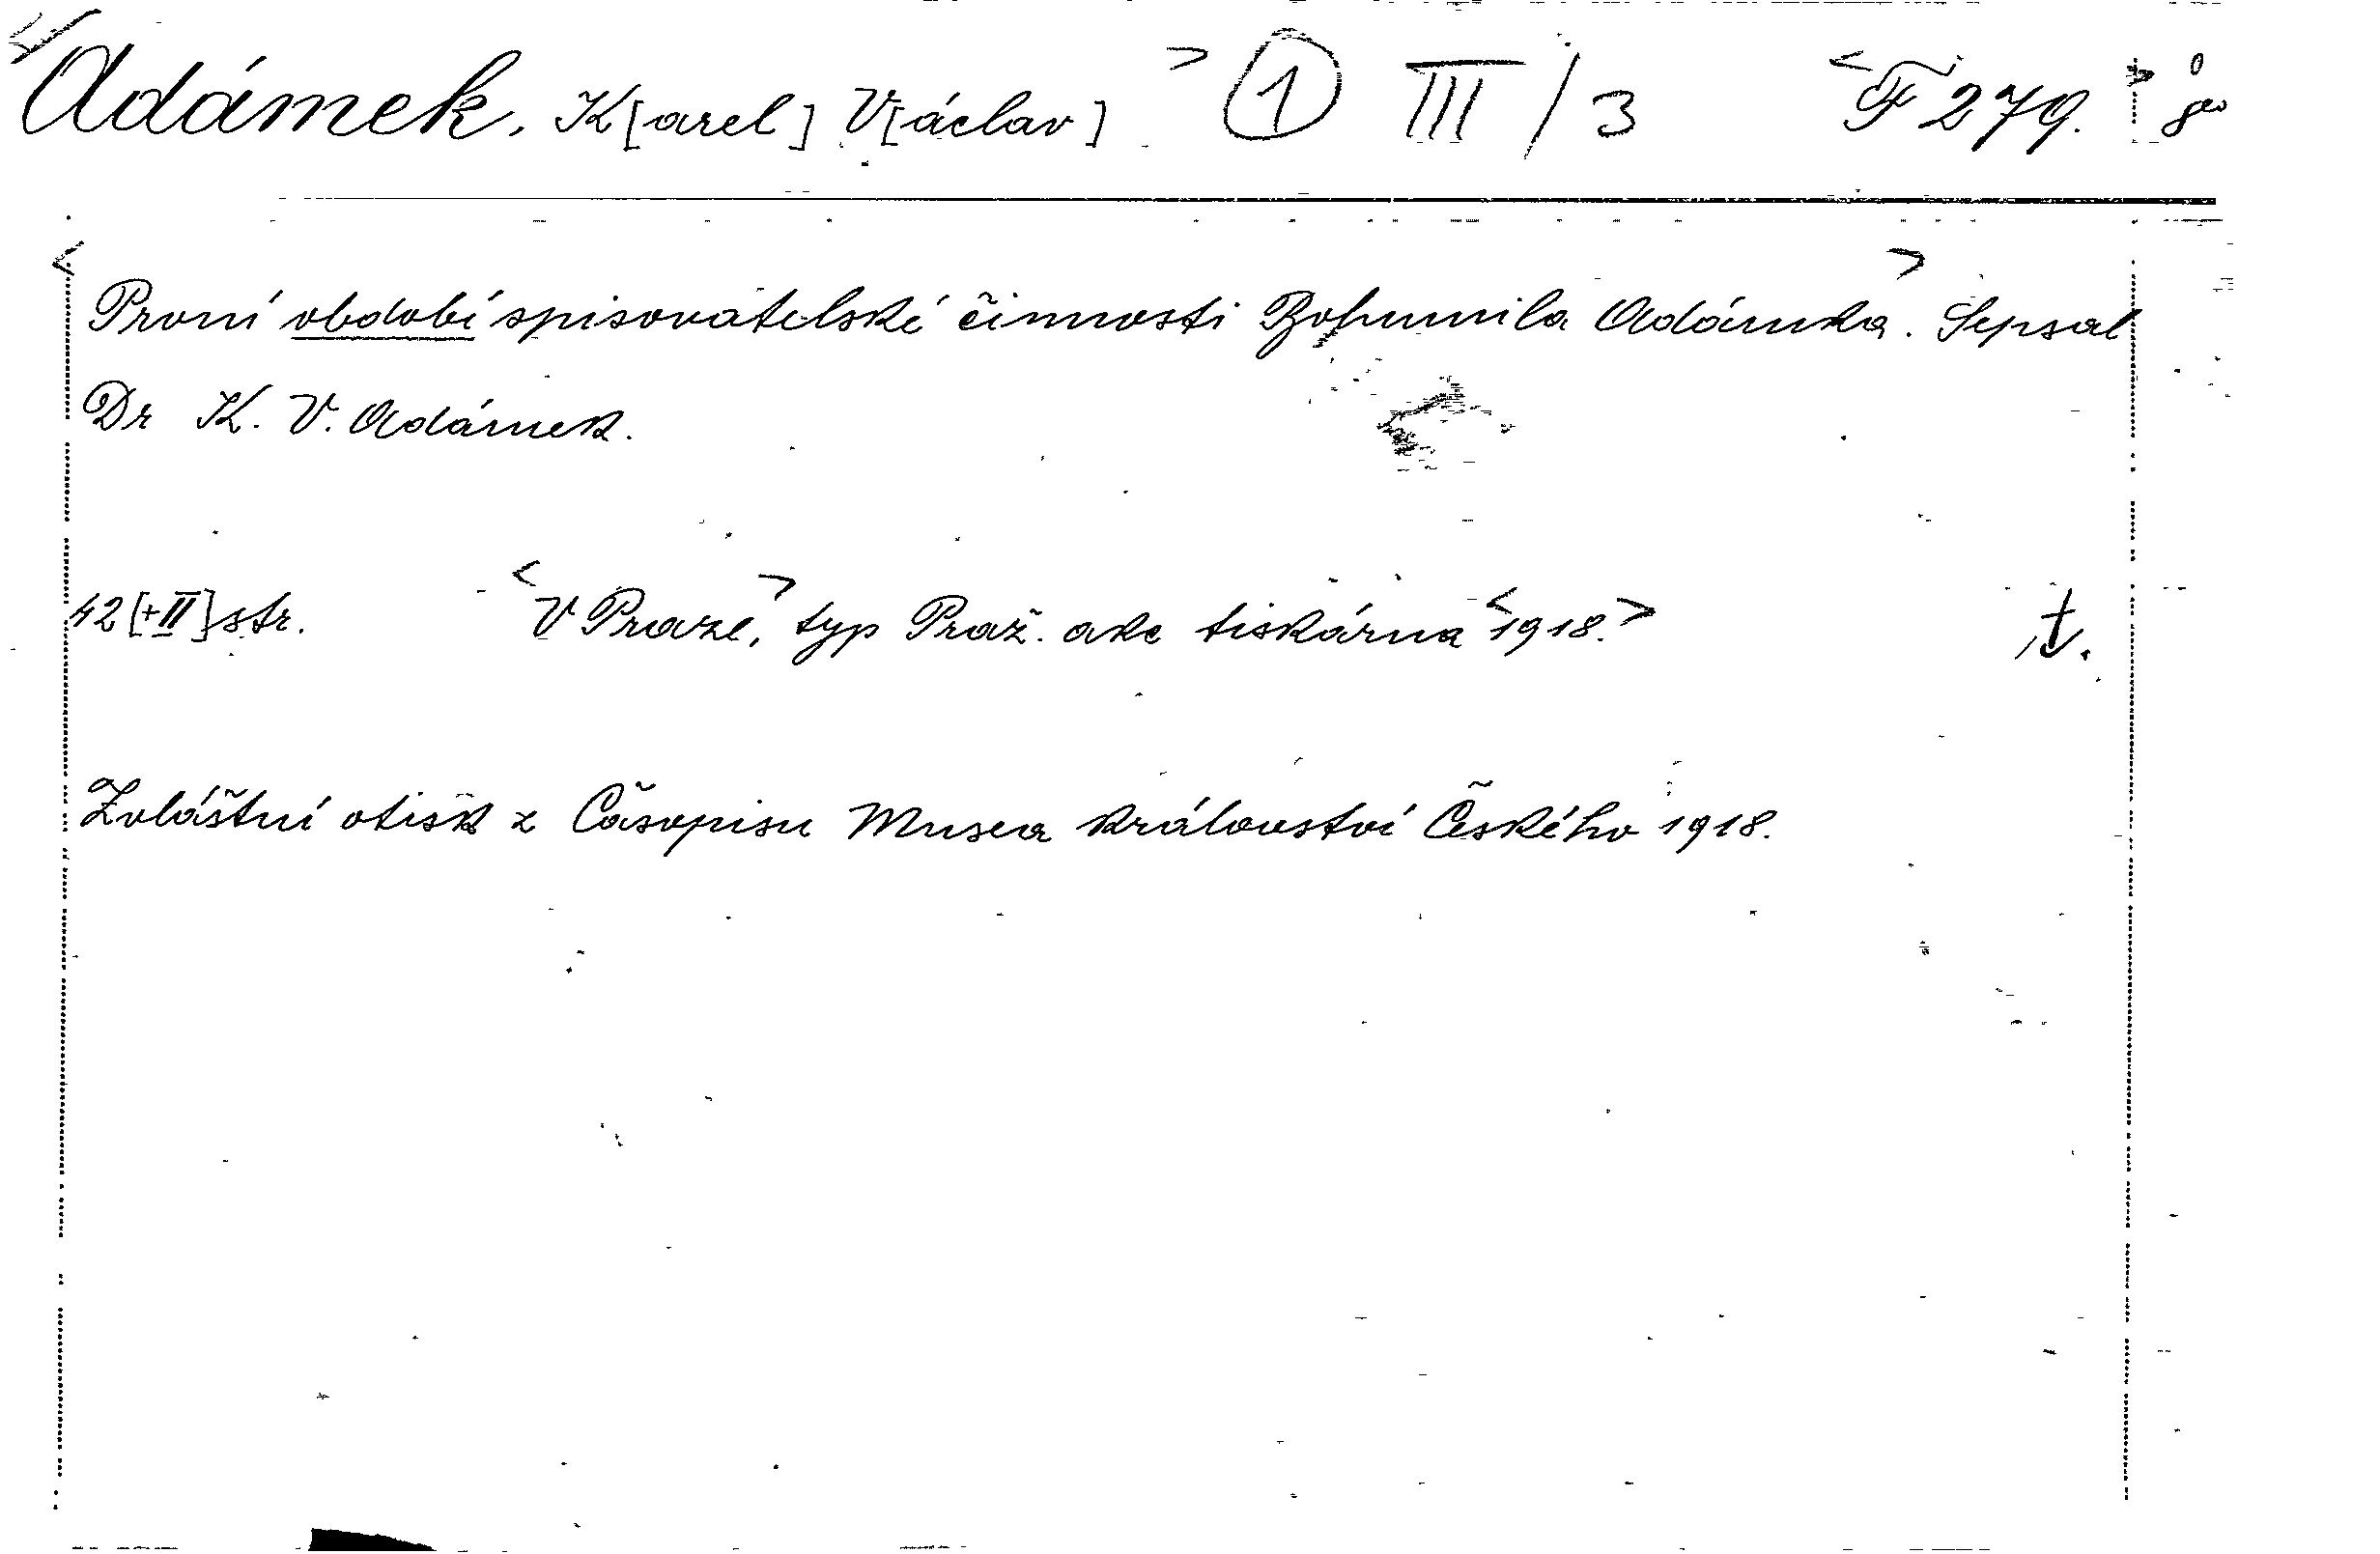 <Adámek, K[arel] V[áclav]> ① III/3 <F 279.> 8°
<První období spisovatelské činnosti Bohumila Adámka>. Sepsal
Dr K. V. Adámek.
42 [+II] str. <V Praze,> typ Praž. akc tiskárna <1918.> t.
Zvláštní otisk z Časopisu Musea království Českého 1918.